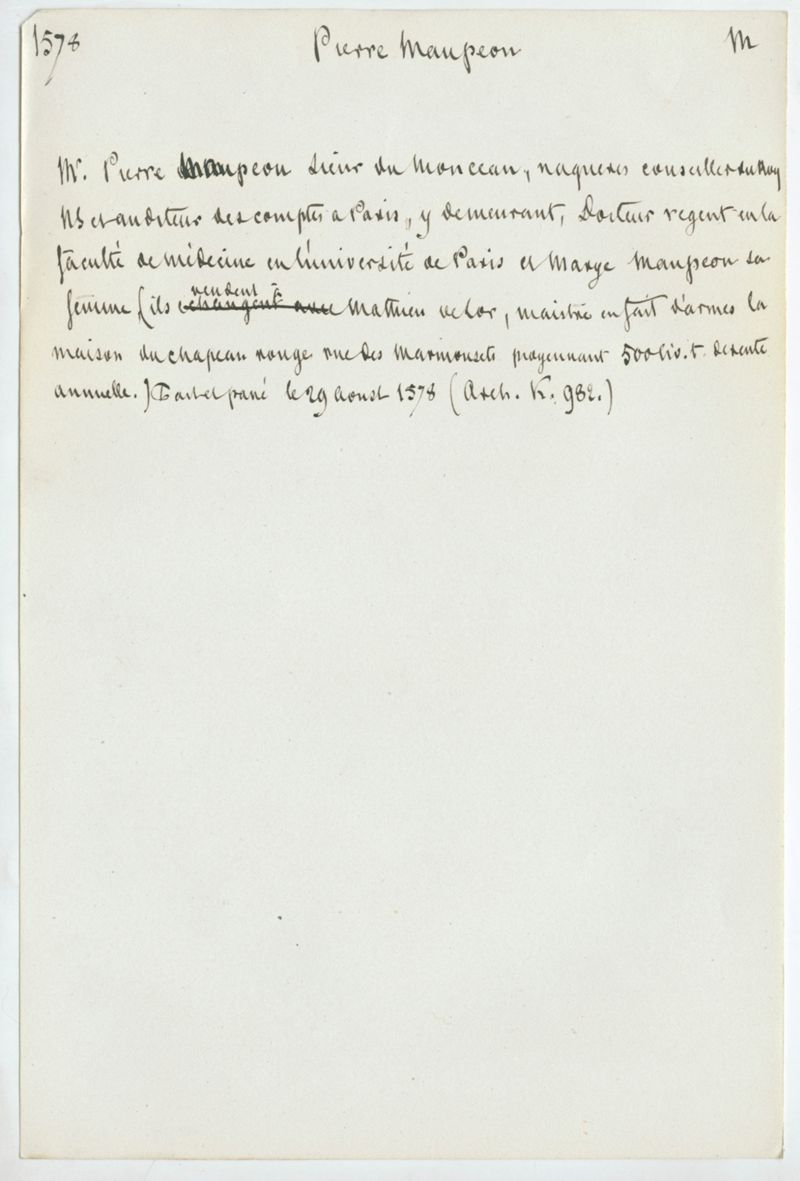 1578 Pierre Maupeou M
Mr. Pierre Maupeou Sieur du Monceau, nagueres conseiller du Roy
NS et auditeur des comptes a Paris, y demeurant, Docteur regent en la
faculté de médecine en l'université de Paris et Marge Maupeou sa
vendent à
femme (ils echangent avec Mathieu delor, maistre en fait d'armes la
maison du chapeau rouge rue des Marmousets moyennant 500 liv. t. de rente
annuelle.) Fait et passé le 29 Aoust 1578 (Arch. K. 982.)